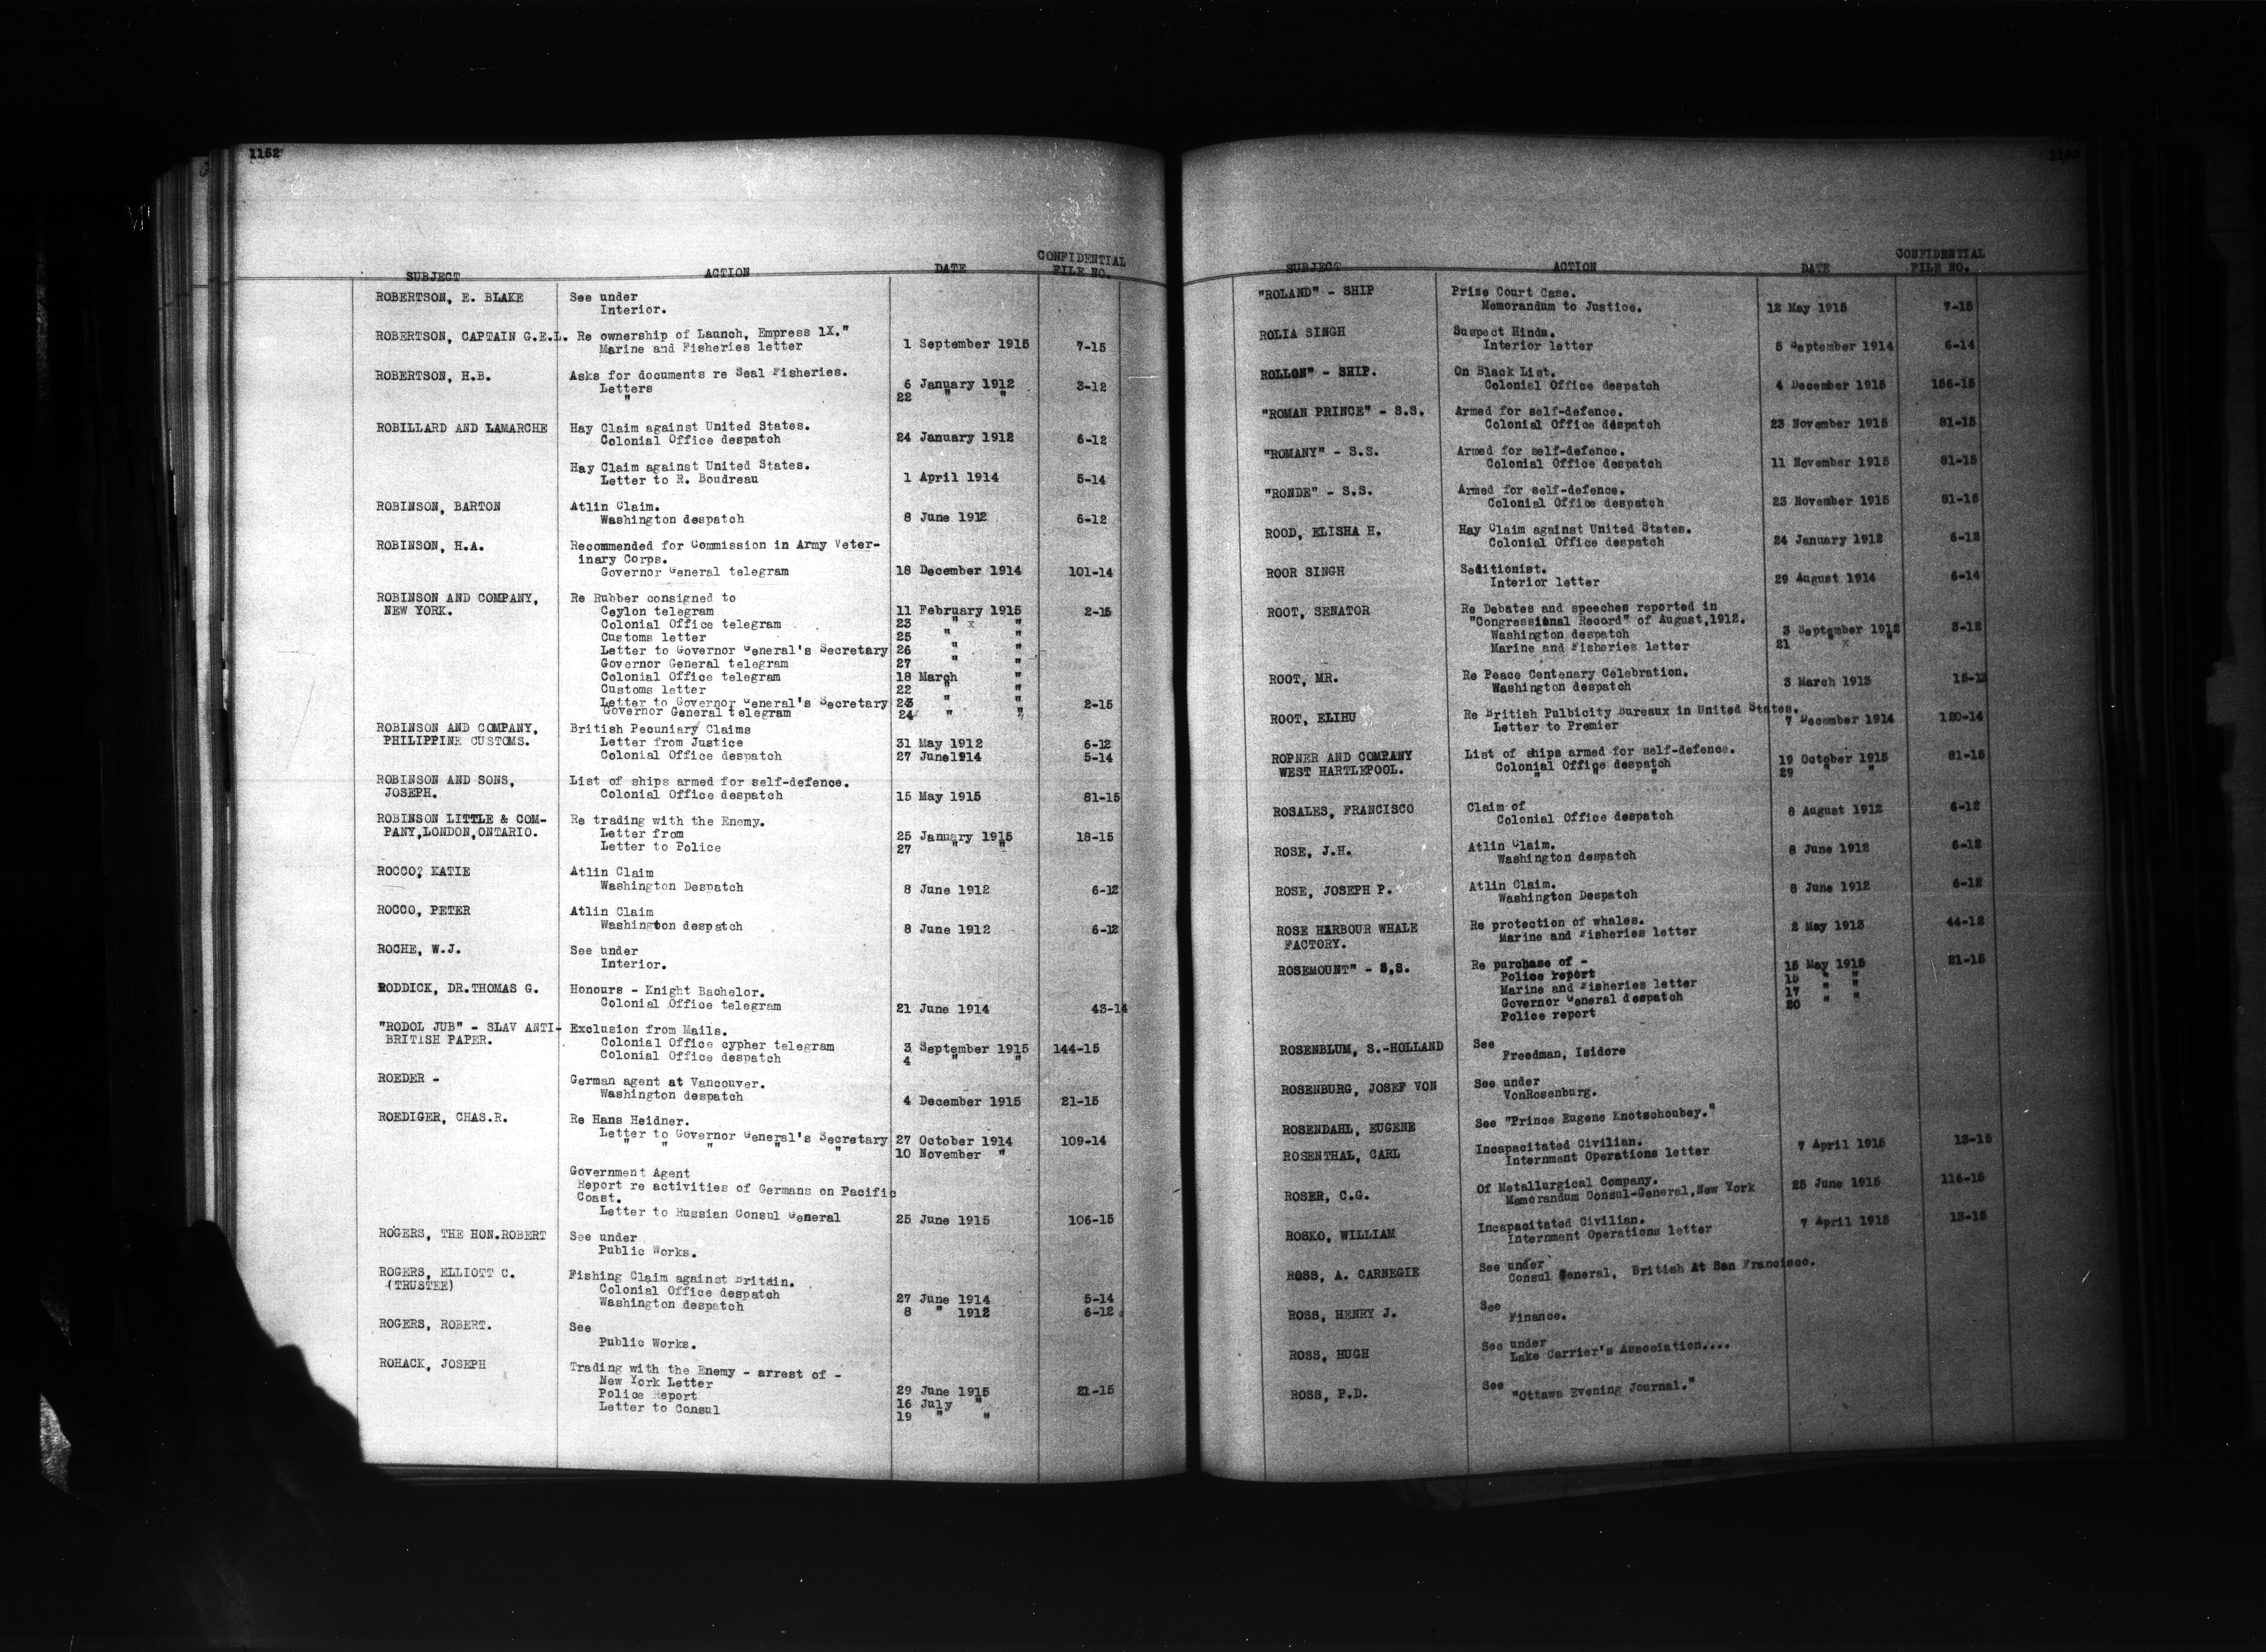 1152
SUBJECT ACTION DATE CONFIDENTIAL FILE NO.
ROBERTSON, E. BLAKE See under
Interior.
ROBERTSON, CAPTAIN G.E.L. Re ownership of Launch, Empress 1X."
Marine and Fisheries letter 1 September 1915 7-15
ROBERTSON, H.B. Asks for documents re Seal Fisheries.
Letters 6 January 1912 3-12
" 22 " "
ROBILLARD AND LAMARCHE Hay Claim against United States.
Colonial Office despatch 24 January 1912 6-12
Hay Claim against United States.
Letter to R. Boudreau 1 April 1914 5-14
ROBINSON, BARTON Atlin Claim.
Washington despatch 8 June 1912 6-12
ROBINSON, H.A. Recommended for Commission in Army Veter-
inary Corps.
Governor General telegram 18 December 1914 101-14
ROBINSON AND COMPANY, Re Rubber consigned to
NEW YORK. Ceylon telegram 11 February 1915 2-15
Colonial Office telegram 23 " x "
Customs letter 25 " "
Letter to Governor General's Secretary 26 " "
Governor General telegram 27 " "
Colonial Office telegram 18 March "
Customs letter 22 " "
Letter to Governor General's Secretary 23 " " 2-15
Governor General telegram 24 " "
ROBINSON AND COMPANY, British Pecuniary Claims
PHILIPPINE CUSTOMS. Letter from Justice 31 May 1912 6-12
Colonial Office despatch 27 June1914 5-14
ROBINSON AND SONS, List of ships armed for self-defence.
JOSEPH. Colonial Office despatch 15 May 1915 81-15
ROBINSON LITTLE & COM- Re trading with the Enemy.
PANY,LONDON,ONTARIO. Letter from 25 January 1915 18-15
Letter to Police 27 " "
ROCCO, KATIE Atlin Claim
Washington Despatch 8 June 1912 6-12
ROCCO, PETER Atlin Claim
Washington despatch 8 June 1912 6-12
ROCHE, W.J. See under
Interior.
RODDICK, DR.THOMAS G. Honours - Knight Bachelor.
Colonial Office telegram 21 June 1914 43-14
"RODOL JUB" - SLAV ANTI- Exclusion from Mails.
BRITISH PAPER. Colonial Office cypher telegram 3 September 1915 144-15
Colonial Office despatch 4 " "
ROEDER - German agent at Vancouver.
Washington despatch 4 December 1915 21-15
ROEDIGER, CHAS.R. Re Hans Heidner.
Letter to Governor General's Secretary 27 October 1914 109-14
" " " " " 10 November "
Government Agent
Report re activities of Germans on Pacific
Coast.
Letter to Russian Consul General 25 June 1915 106-15
ROGERS, THE HON.ROBERT See under
Public Works.
ROGERS, ELLIOTT C. Fishing Claim against Britain.
(TRUSTEE) Colonial Office despatch 27 June 1914 5-14
Washington despatch 8 " 1912 6-12
ROGERS, ROBERT. See
Public Works.
ROHACK, JOSEPH Trading with the Enemy - arrest of -
New York Letter 29 June 1915 21-15
Police Report 16 July "
Letter to Consul 19 " "
SUBJECT ACTION DATE CONFIDENTIAL FILE NO.
"ROLAND" - SHIP Prize Court Case.
Memorandum to Justice. 12 May 1915 7-15
ROLIA SINGH Suspect Hindu.
Interior letter 5 September 1914 6-14
ROLLON" - SHIP. On Black List.
Colonial Office despatch 4 December 1915 156-15
"ROMAN PRINCE" - S.S. Armed for self-defence.
Colonial Office despatch 23 November 1915 81-15
"ROMANY" - S.S. Armed for self-defence.
Colonial Office despatch 11 November 1915 81-15
"RONDE" - S.S. Armed for self-defence.
Colonial Office despatch 23 November 1915 81-15
ROOD, ELISHA H. Hay Claim against United States.
Colonial Office despatch 24 January 1912 6-12
ROOR SINGH Seditionist.
Interior letter 29 August 1914 6-14
ROOT, SENATOR Re Debates and speeches reported in
"Congressional Record" of August,1912.
Washington despatch 3 September 1912 3-12
Marine and Fisheries letter 21 " x "
ROOT, MR. Re Peace Centenary Celebration.
Washington despatch 3 March 1913
ROOT, ELIHU Re British Pulbicity Bureaux in United States.
Letter to Premier 7 December 1914 120-14
ROPNER AND COMPANY List of ships armed for self-defence.
WEST HARTLEPOOL. Colonial Office despatch 19 October 1915 81-15
" " " 29 " "
ROSALES, FRANCISCO Claim of
Colonial Office despatch 8 August 1912 6-12
ROSE, J.H. Atlin Claim.
Washington despatch 8 June 1912 6-12
ROSE, JOSEPH P. Atlin Claim.
Washington Despatch 8 June 1912 6-12
ROSE HARBOUR WHALE Re protection of whales.
FACTORY. Marine and Fisheries letter 2 May 1913 44-12
ROSEMOUNT" - S.S. Re purchase of - 15 May 1915 21-15
Police report 15 " "
Marine and Fisheries letter 17 " "
Governor General despatch 20 " "
Police report
ROSENBLUM, S.-HOLLAND See
Freedman, Isidore
ROSENBURG, JOSEF VON See under
VonRosenburg.
ROSENDAHL, EUGENE See "Prince Eugene Knotschoubey."
ROSENTHAL, CARL Incapacitated Civilian. 7 April 1915 13-15
Internment Operations letter
ROSER, C.G. Of Metallurgical Company.
Memorandum Consul-General,New York 25 June 1915 116-15
ROSKO, WILLIAM Incapacitated Civilian. 7 April 1915 13-15
Internment Operations letter
ROSS, A. CARNEGIE See under
Consul General, British At San Francisco.
ROSS, HENRY J. See
Finance.
ROSS, HUGH See under
Lake Carrier's Association....
ROSS, P.D. See
"Ottawa Evening Journal."